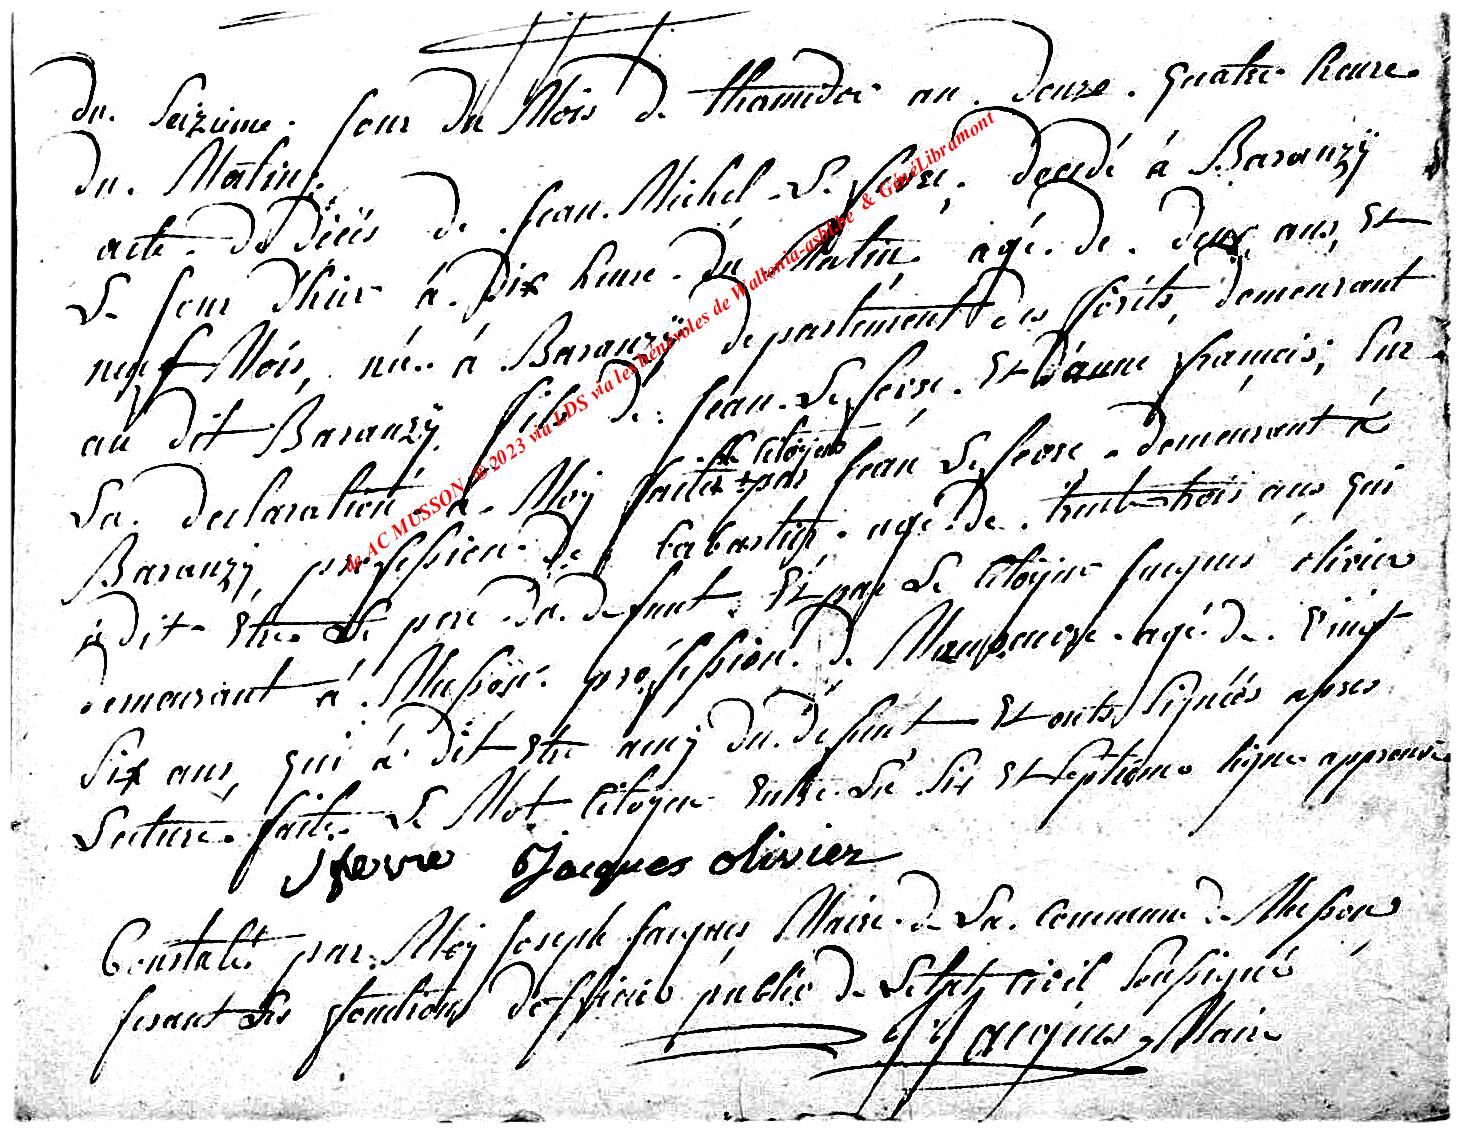 du Seizieme jour du Mois de thermidor an douze quatre heure
du Matin
acte de Décés de jean Michel Le fevre décédé à Baranzÿ
Le jour d'hier à Dix heure du Matin agé de deux ans, Et
neuf Mois, née à Baranzÿ département des forêts, demeurant
au dit Baranzÿ fils de jean Le fevre Et d'anne francois, Sur
Le Citoyen
La declaration à Moÿ faite par jean Le fevre demeurant à
Baranzÿ, profession de agé de trente trois ans qui
à dit Etre Le pere du defunt Et par Le Citoyen jacques olivier
demeurant à Musson profession de Manoeuvre agé de Vingt
Six ans, qui à dit Etre amÿ du defunt Et onts Signées apres
Lecture faite Le Mot Citoyen Entre Le Six Et Septieme ligne approuvé
fevre Jacques olivier
Constaté par Moÿ joseph jacques Maire de La Commune de Musson
fesant les fonctions d'officier public de Letat civil Soussigné
J J Jacques Maire
de AC MUSSON ®2023 via LDS via les bénévoles de Wallonia-asbl.be & GénéLibramont